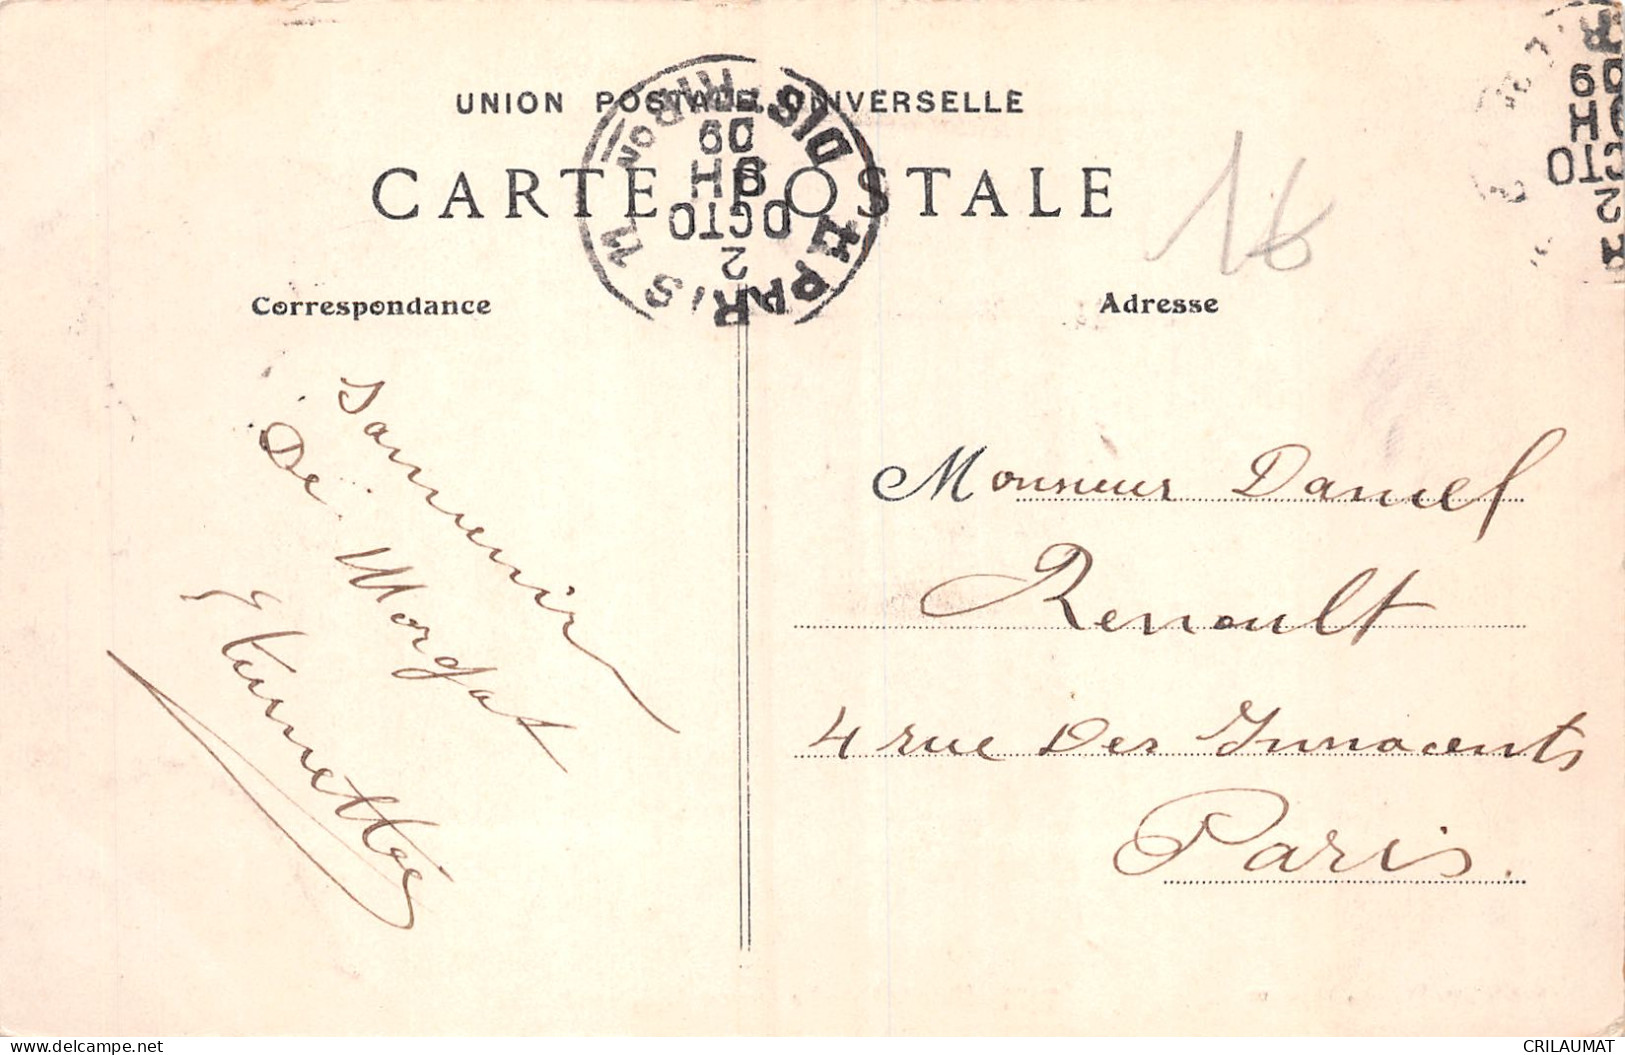 UNION POSTALE UNIVERSELLE
CARTE POSTALE
PARIS 11 DISTRIBON
09
9H
OCTO
2
16
09
H
OCTO
2
Correspondance
Adresse
Souvenir
De Morgat
Monsieur Daniel
Renault
4 rue Des Innocents
Paris.
CRILAUMAT